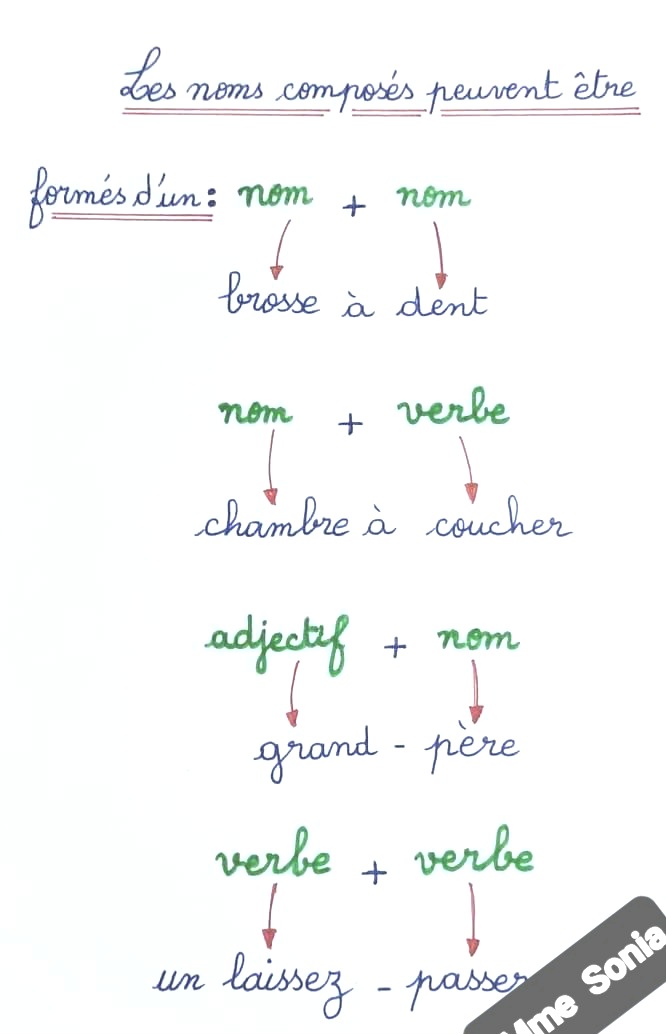 Les noms composés peuvent être
formés d'un : nom + nom
brosse à dent
nom + verbe
chambre à coucher
adjectif + nom
grand - père
verbe + verbe
un laissez - passer
Mme Sonia